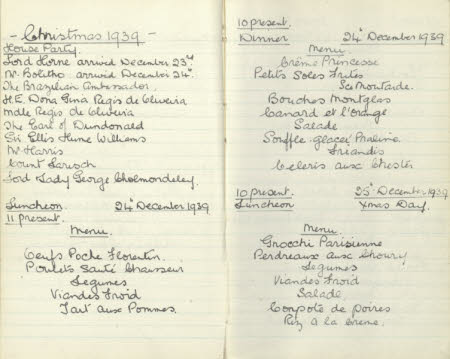 - Christmas 1939 -
House Party.
Lord Horne arrived December 23rd.
Mr Bolitho arrived December 24th.
The Brazilian Ambassador.
H.E. Dona Gina Regis de Oliveira
Mdlle Regis de Oliveira
The Earl of Dundonald
Sir Ellis Hume Williams
Mr Harris
Count Larisch
Lord Lady George Cholmondeley.
Luncheon. 24th December 1939
11 present.
Menu.
Oeufs Poche Florentin.
Poulets Sauté Chasseur
Legumes
Viandes Froid
Tart aux Pommes.
10 present.
Dinner 24th December 1939
Menu
Crème Princesse
Petits Soles Frites
Sc Moutarde.
Bouches Montglas
Canard et l'Orange
Salade
Souffle glacée Praline
Friandis
Celeris aux Chester
10 present. 25th December 1939
Luncheon Xmas Day.
Menu.
Gnocchi Parisienne
Perdreaux aux Choux
Legumes
Viandes Froid
Salade
Compote de poires
Riz à la Creme.